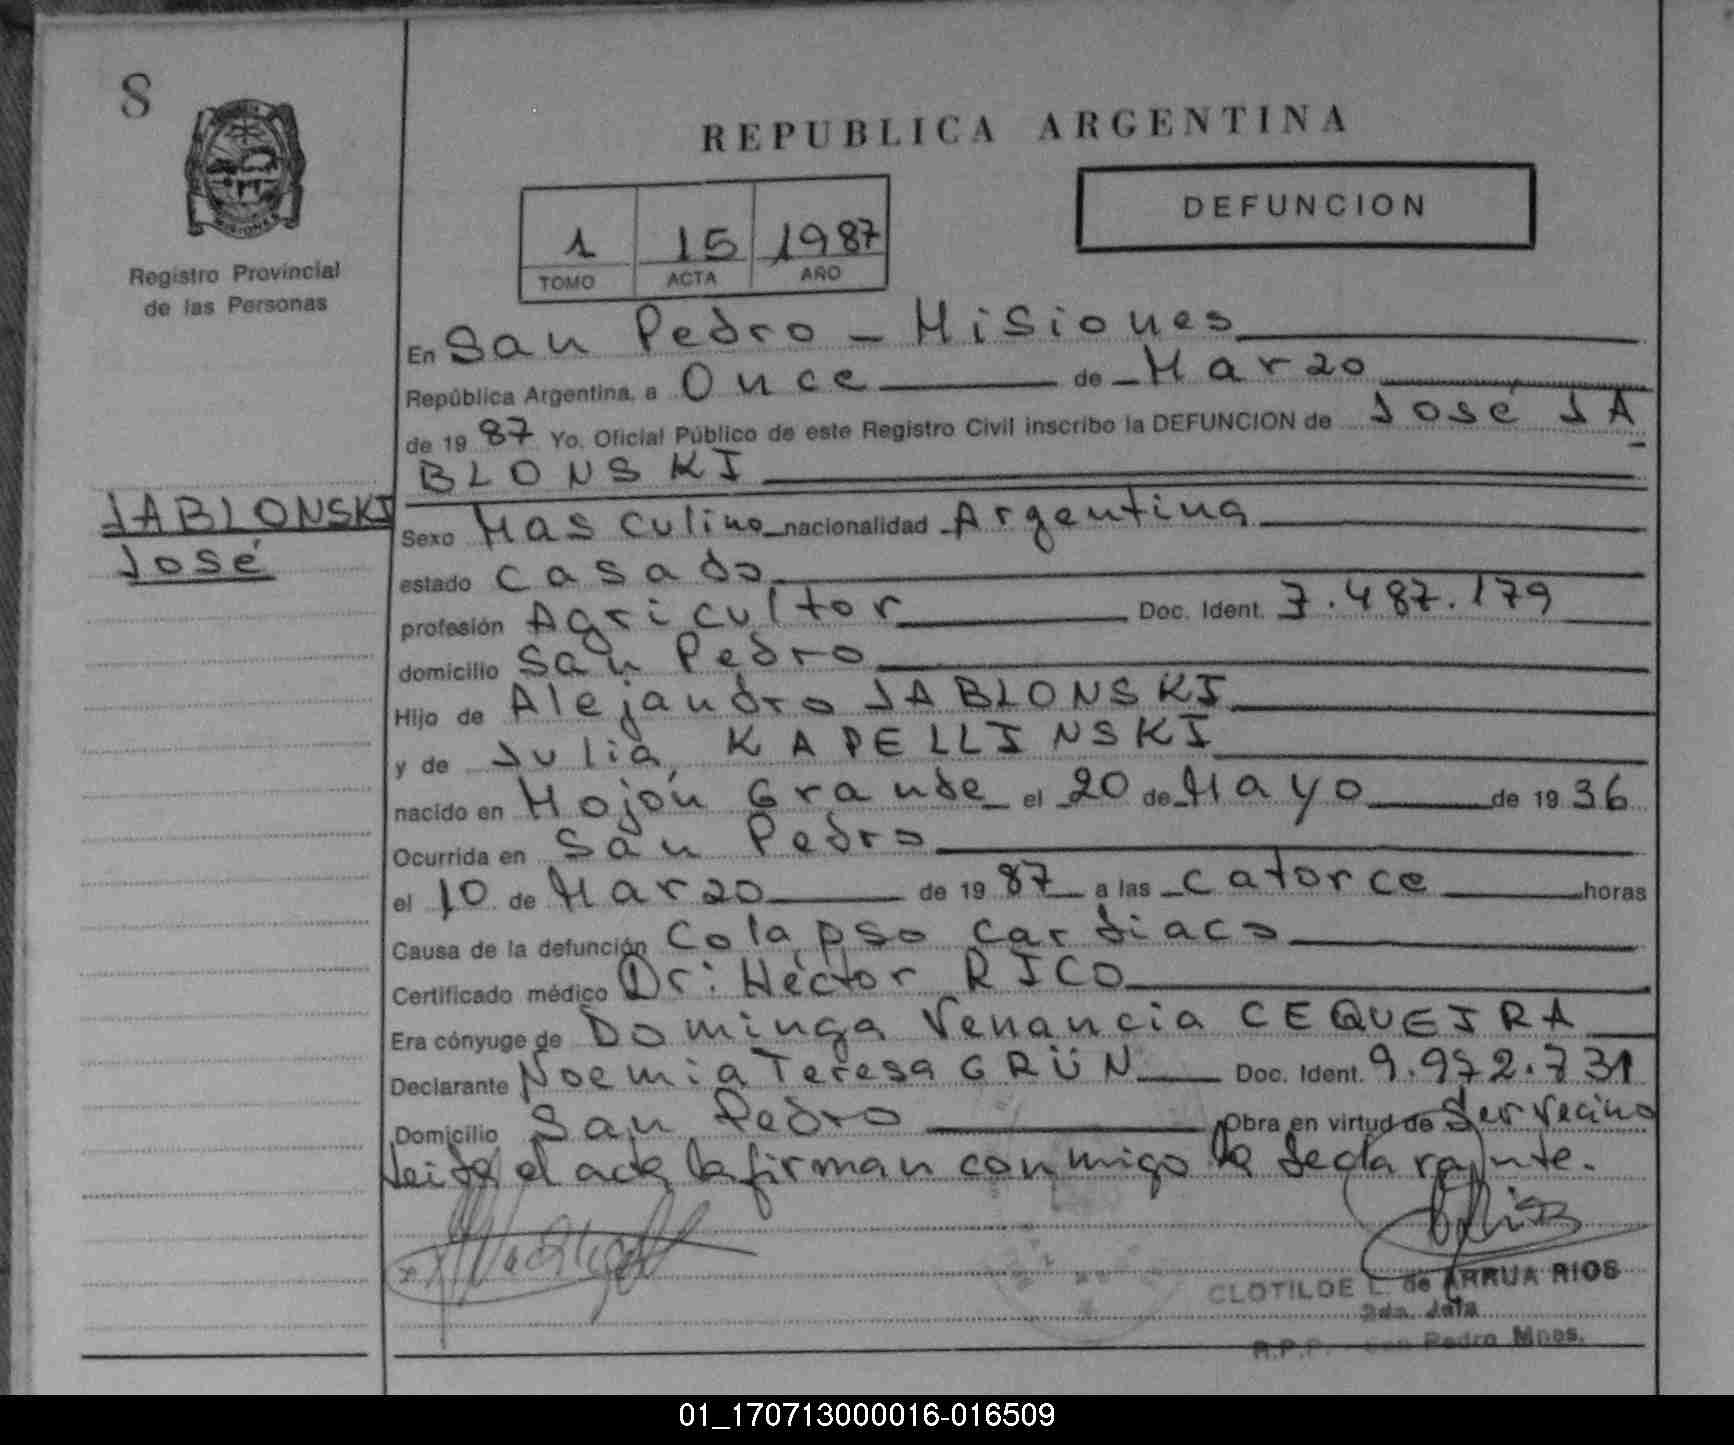 8
MISIONES
Registro Provincial
de las Personas
JABLONSKI
José
REPUBLICA ARGENTINA
DEFUNCION
1 15 1987
TOMO ACTA AÑO
En San Pedro - Misiones
República Argentina, a Once de Marzo
de 19 87 Yo, Oficial Público de este Registro Civil inscribo la DEFUNCION de José JA
BLONSKI
Sexo Masculino nacionalidad Argentina
estado casado
profesión Agricultor Doc. Ident. 7.487.179
domicilio San Pedro
Hijo de Alejandro JABLONSKI
y de Julia KAPELLINSKI
nacido en Mojón Grande el 20 de Mayo de 19 36
Ocurrida en San Pedro
el 10 de Marzo de 19 87 a las catorce horas
Causa de la defunción Colapso cardiaco
Certificado médico Dr: Héctor RICO
Era cónyuge de Dominga Venancia CEQUEIRA
Declarante Noemia Teresa GRÜN Doc. Ident. 9.972.731
Domicilio San Pedro Obra en virtud de Ser vecino
leída el acta la firman conmigo la declarante.
CLOTILDE L. de ARRUA RIOS
2da. Jefa
R.P.P. San Pedro Mnes.
01_170713000016-016509